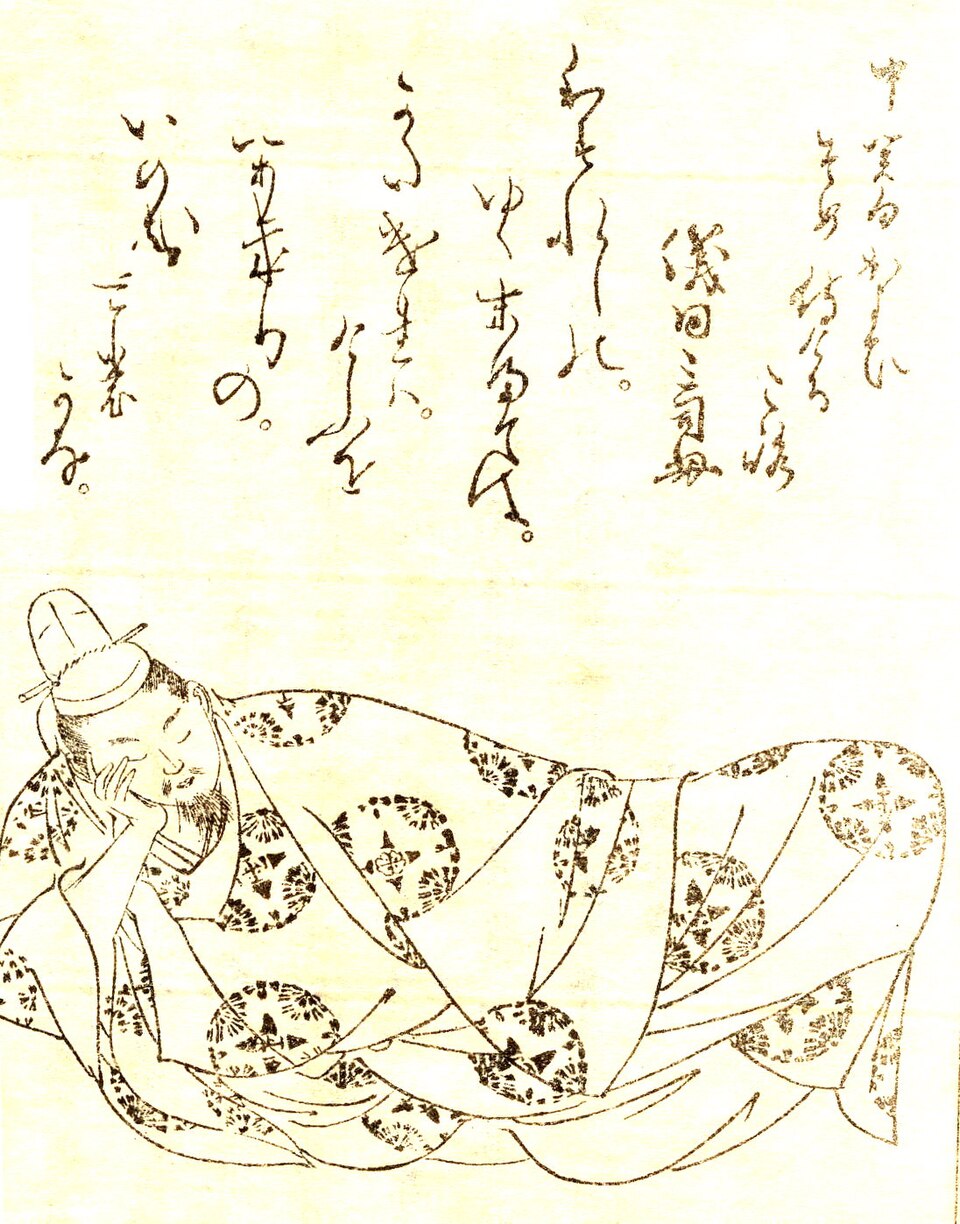 中関白かよひ
そめ侍ける
ころ
儀同三司母
わすれしの。
ゆく末まては。
かたけれは。
けふを
かきりの。
いのち
とも
かな。